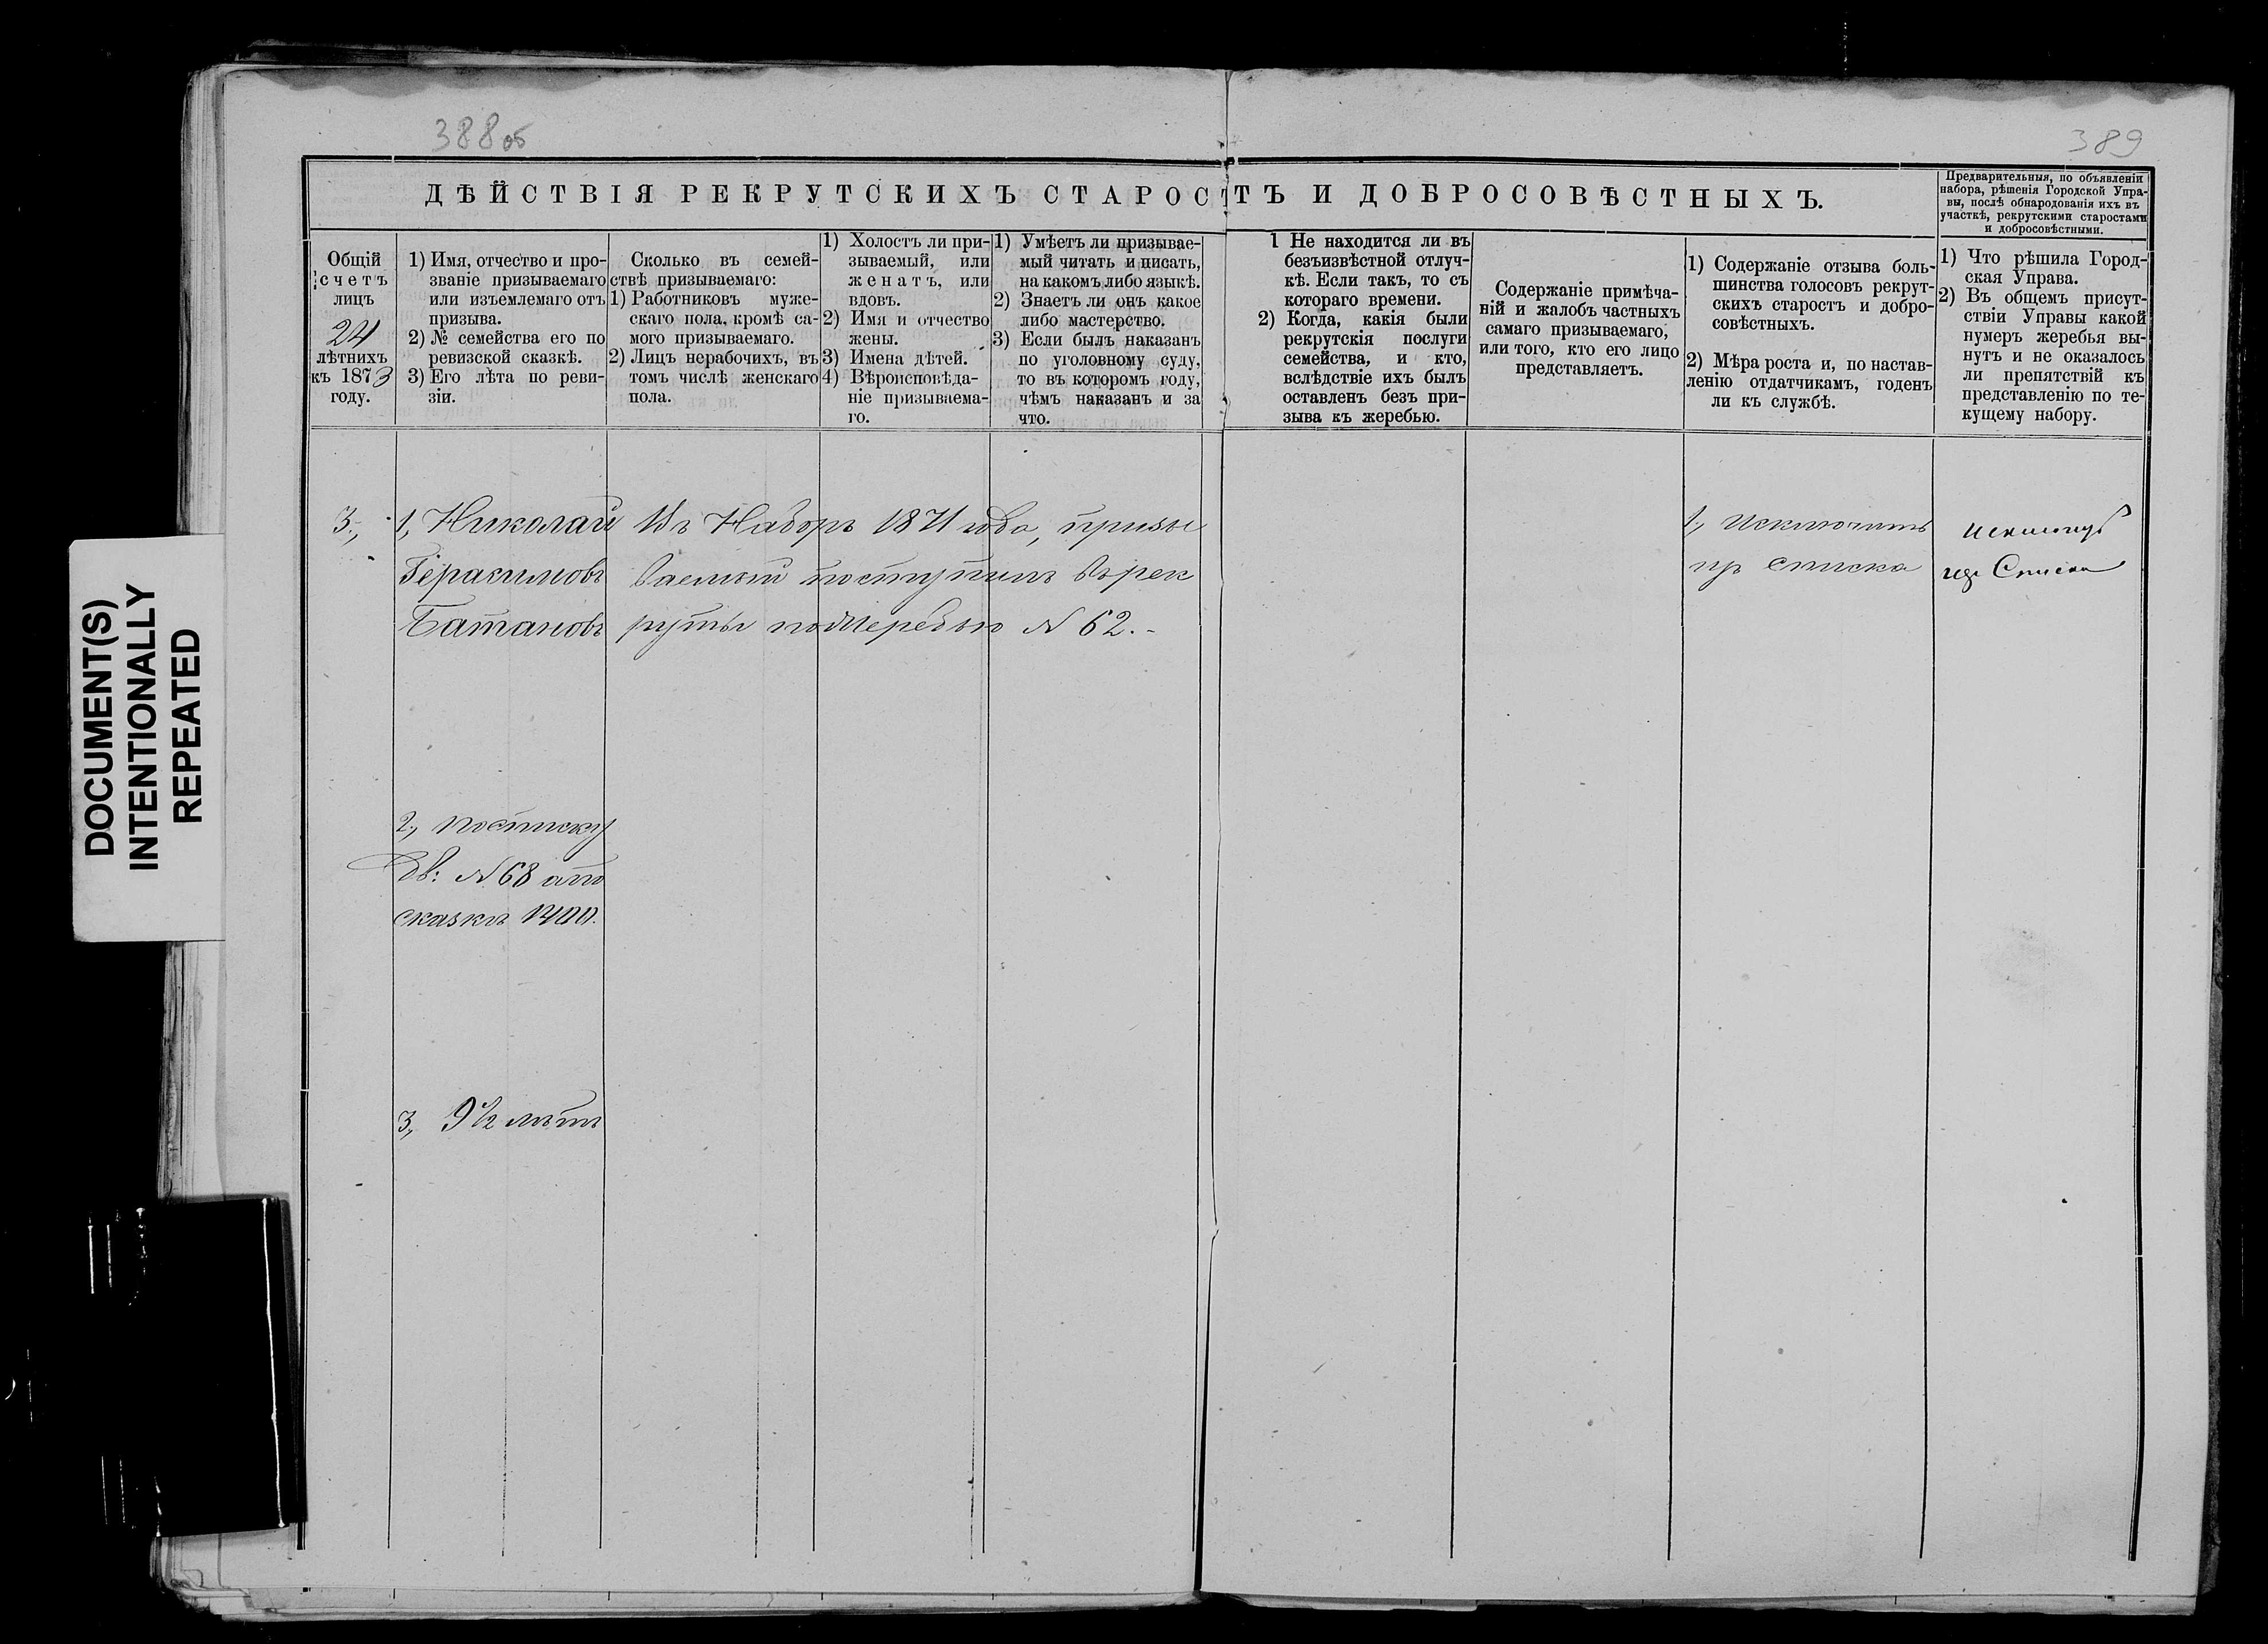 388 об
389
ДѢЙСТВІЯ РЕКРУТСКИХЪ СТАРОСТЪ И ДОБРОСОВѢСТНЫХЪ.
Предварительныя, по объявленіи
набора, рѣшенія Городской Упра-
вы, послѣ обнародованія ихъ въ
участкѣ, рекрутскими старостами
и добросовѣстными.
Общій
счетъ
лицъ
24
лѣтнихъ
къ 1873
году.
1) Имя, отчество и про-
званіе призываемаго
или изъемлемаго отъ
призыва.
2) № семейства его по
ревизской сказкѣ.
3) Его лѣта по реви-
зіи.
Сколько въ семей-
ствѣ призываемаго:
1) Работниковъ муже-
скаго пола, кромѣ са-
мого призываемаго.
2) Лицъ нерабочихъ, въ
томъ числѣ женскаго
пола.
1) Холостъ ли при-
зываемый, или
женатъ, или
вдовъ.
2) Имя и отчество
жены.
3) Имена дѣтей.
4) Вѣроисповѣда-
ніе призываема-
го.
1) Умѣетъ ли призывае-
мый читать и писать,
на какомъ либо языкѣ.
2) Знаетъ ли онъ какое
либо мастерство.
3) Если былъ наказанъ
по уголовному суду,
то въ которомъ году,
чѣмъ наказанъ и за
что.
1 Не находится ли въ
безъизвѣстной отлуч-
кѣ. Если такъ, то съ
котораго времени.
2) Когда, какія были
рекрутскія послуги
семейства, и кто,
вслѣдствіе ихъ былъ
оставленъ безъ при-
зыва къ жеребью.
Содержаніе примѣча-
ній и жалобъ частныхъ
самаго призываемаго,
или того, кто его лицо
представляетъ.
1) Содержаніе отзыва боль-
шинства голосовъ рекрут-
скихъ старостъ и добро-
совѣстныхъ.
2) Мѣра роста и, по настав-
ленію отдатчикамъ, годенъ
ли къ службѣ.
1) Что рѣшила Город-
ская Управа.
2) Въ общемъ присут-
ствіи Управы какой
нумеръ жеребья вы-
нутъ и не оказалось
ли препятствій къ
представленію по те-
кущему набору.
3.,
1, Николай
Герасимовъ
Батановъ
Въ Наборъ 1871 года, призы
ваемый поступилъ въ рек
руты по жеребью № 62.-
1., Исключить
изъ списка
Исключить
изъ Списка
2., по списку
дв: № 68 а по
сказкѣ 1400.
3, 9½ лѣтъ
DOCUMENT(S)
INTENTIONALLY
REPEATED